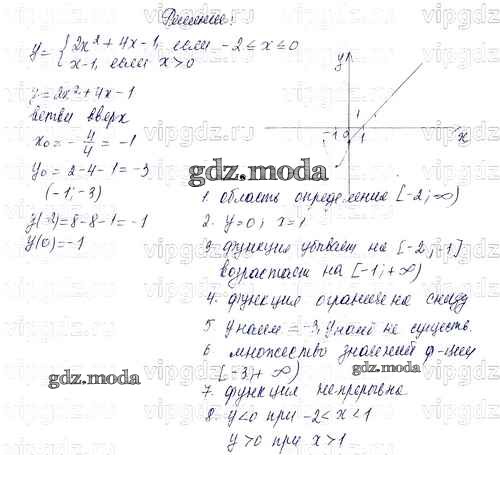 Решение:
y = { 2x² + 4x - 1, если -2 ≤ x ≤ 0
x - 1, если x > 0
y = 2x² + 4x - 1
ветви вверх
x₀ = - 4/4 = -1
y₀ = 2 - 4 - 1 = -3
(-1; -3)
y(-2) = 8 - 8 - 1 = -1
y(0) = -1
y
1
-1 0 1 x
1. область определения [-2; ∞)
2. y = 0; x = 1
3. функция убывает на [-2; -1]
возрастает на [-1; +∞)
4. функция ограничена снизу
5 y наим = -3, y наиб не существ.
6 множество значений ф-ции
[-3; + ∞)
7. функция непрерывна
8. y < 0 при -2 < x < 1
y > 0 при x > 1
gdz.moda
gdz.moda
gdz.moda
vipgdz.ru